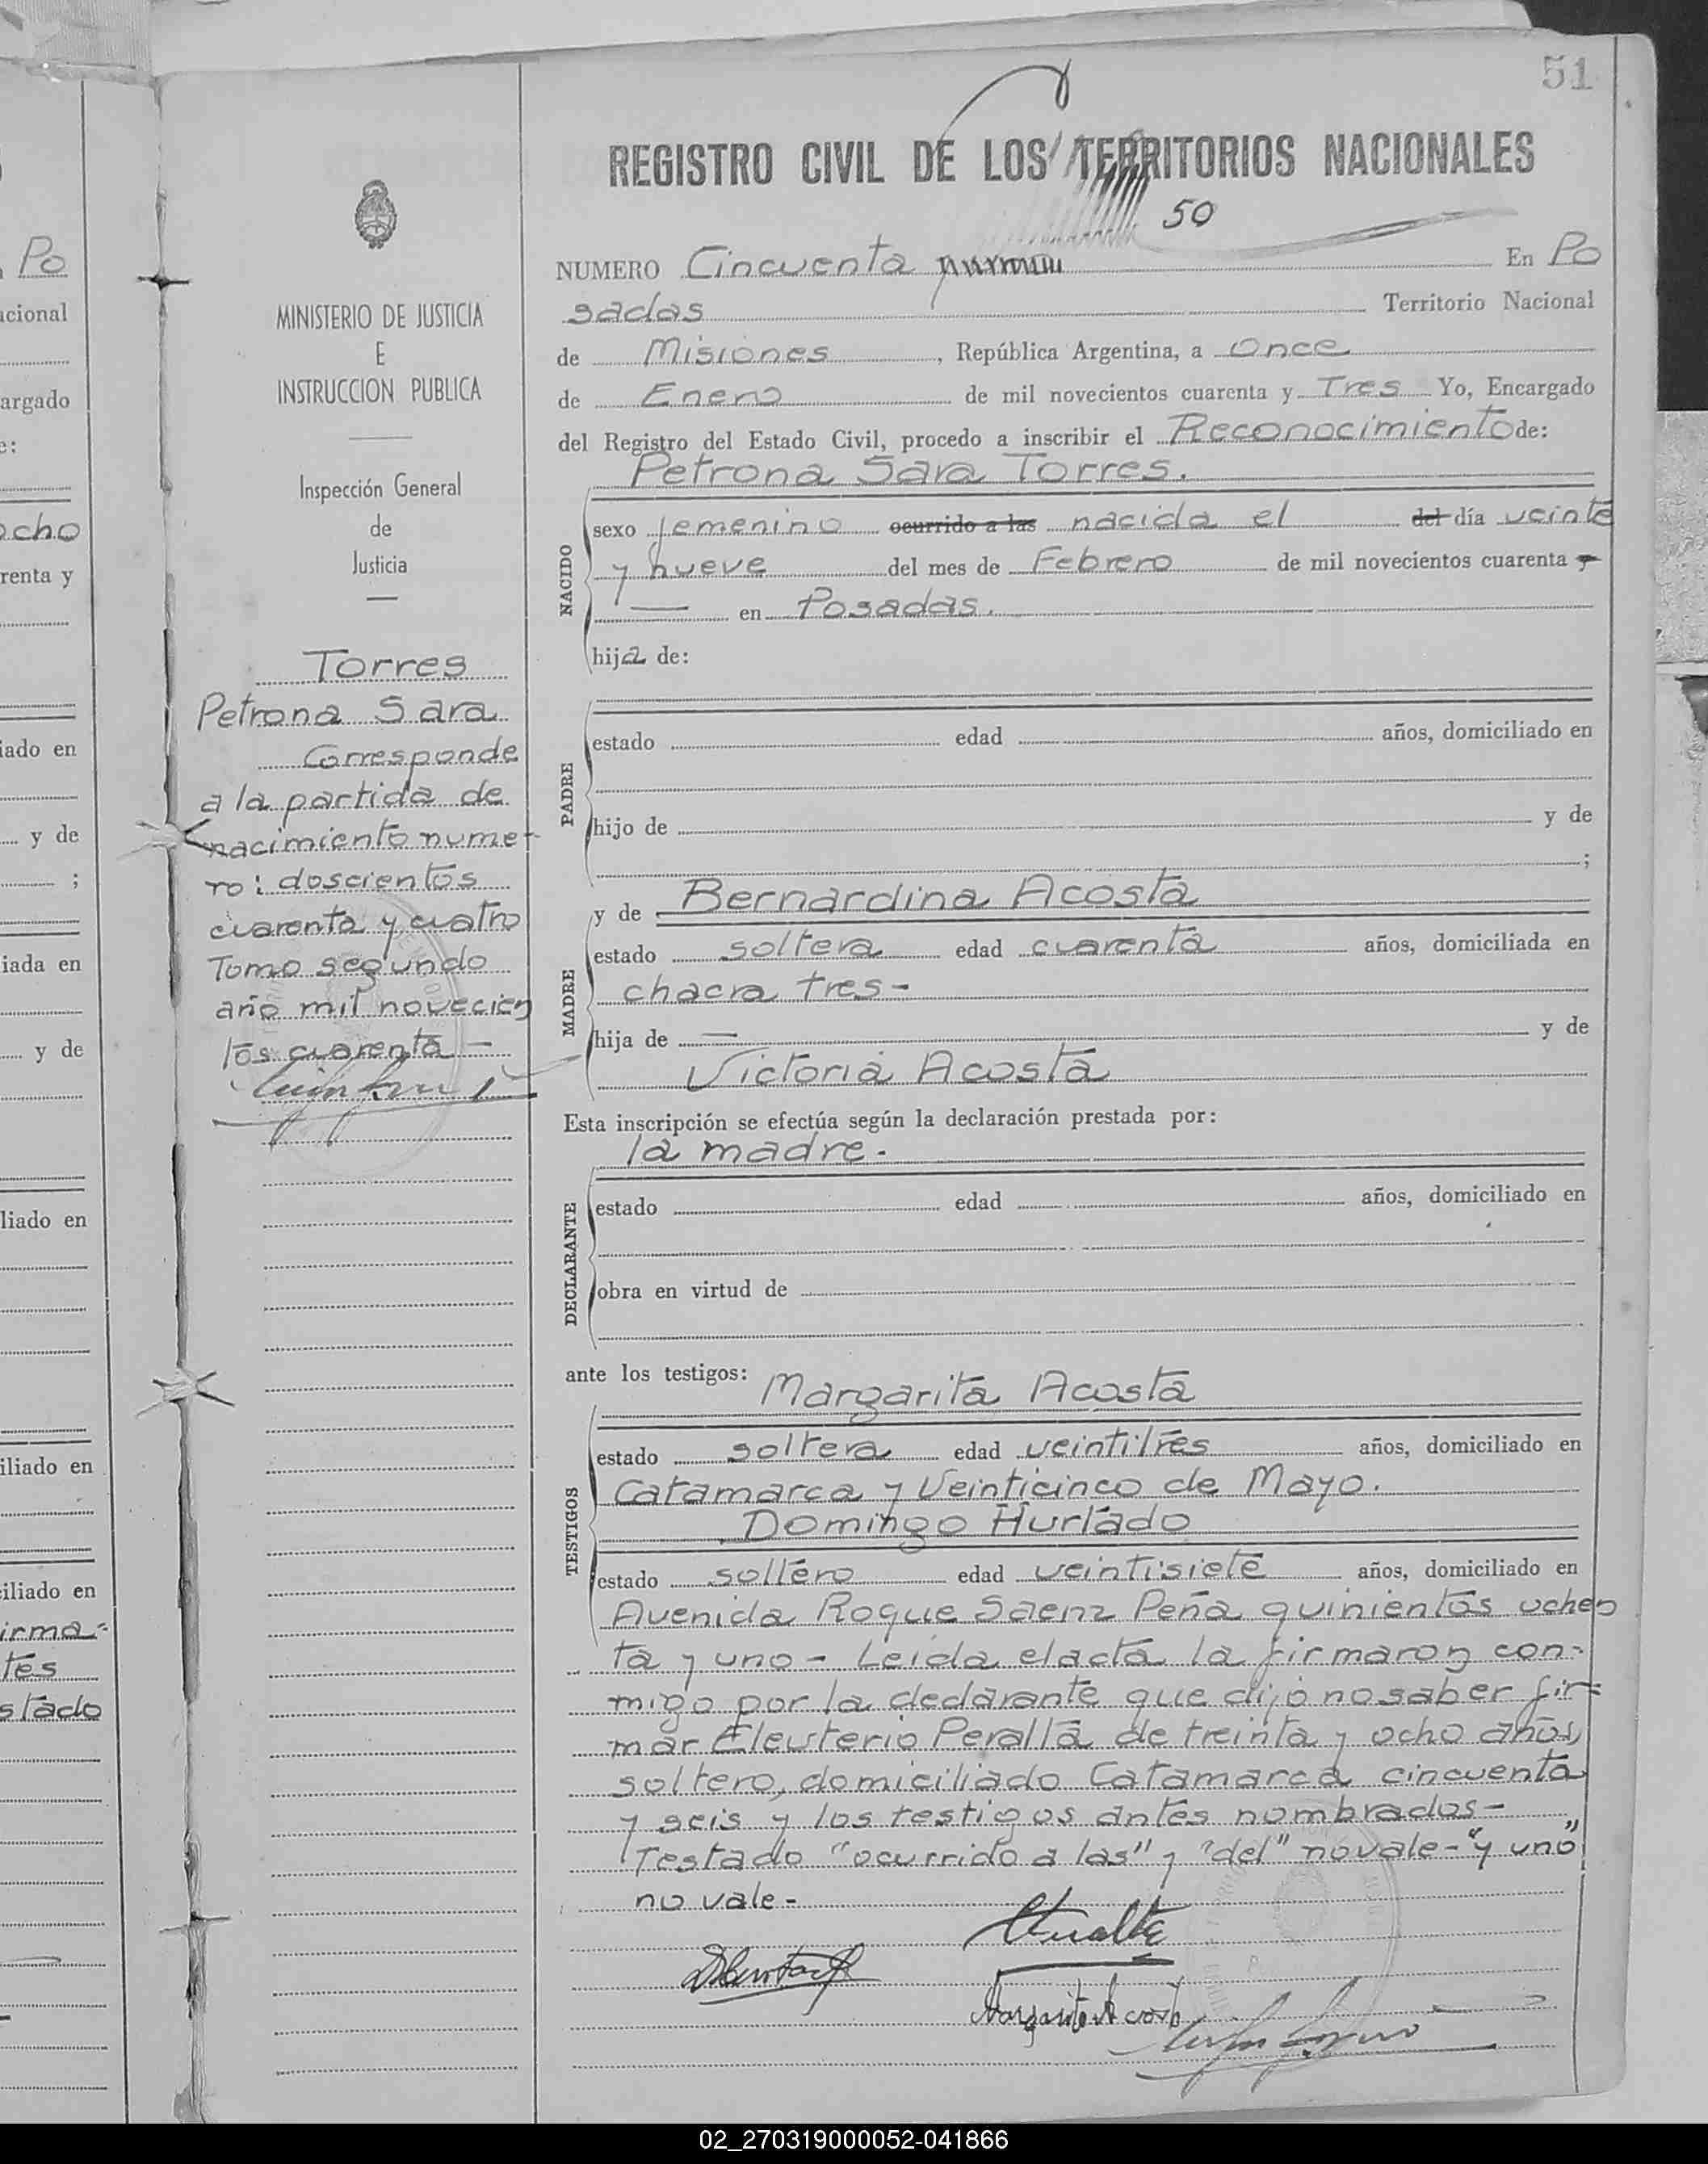 51
REGISTRO CIVIL DE LOS TERRITORIOS NACIONALES
50
NUMERO Cincuenta En Po
sadas Territorio Nacional
de Misiones, República Argentina, a once
de Enero de mil novecientos cuarenta y Tres Yo, Encargado
del Registro del Estado Civil, procedo a inscribir el Reconocimiento de:
Petrona Sara Torres.
NACIDO
sexo femenino ocurrido a las nacida el del día veinte
y nueve del mes de Febrero de mil novecientos cuarenta y
— en Posadas.
hija de:
PADRE
estado edad años, domiciliado en
hijo de y de
;
y de Bernardina Acosta
MADRE
estado soltera edad cuarenta años, domiciliada en
chacra tres-
hija de — y de
Victoria Acosta
Esta inscripción se efectúa según la declaración prestada por:
la madre.
DECLARANTE
estado edad años, domiciliado en
obra en virtud de
ante los testigos: Margarita Acosta
TESTIGOS
estado soltera edad veintitres años, domiciliado en
Catamarca y Veinticinco de Mayo.
Domingo Hurtado
estado soltero edad veintisiete años, domiciliado en
Avenida Roque Saenz Peña quinientos ochen
ta y uno - Leida el acta la firmaron con-
migo por la declarante que dijo no saber fir=
mar Eleuterio Peralta de treinta y ocho años,
soltero, domiciliado Catamarca cincuenta
y seis y los testigos antes nombrados-
Testado "ocurrido a las" y "del" no vale-"y uno"
no vale-
Margarita Acosta
MINISTERIO DE JUSTICIA
E
INSTRUCCION PUBLICA
Inspección General
de
Justicia
Torres
Petrona Sara
Corresponde
a la partida de
nacimiento nume-
ro: doscientos
cuarenta y cuatro
Tomo segundo
año mil novecien
tos cuarenta -
Po
acional
argado
e:
ocho
renta y
iado en
y de
;
iada en
y de
liado en
iliado en
iliado en
irma-
tes
stado
02_270319000052-041866